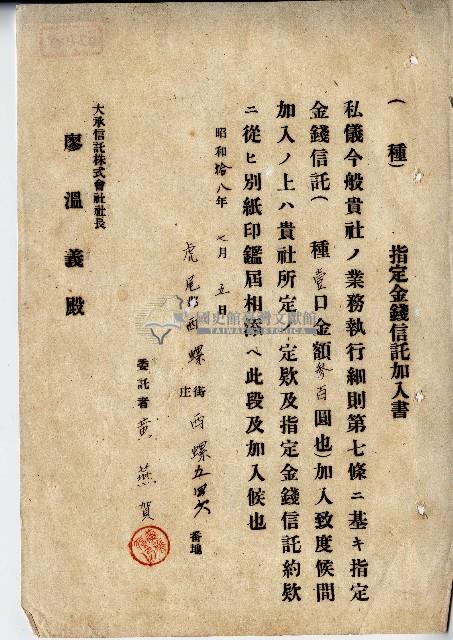 指定金錢信託加入書
( 種)
私儀今般貴社ノ業務執行細則第七條ニ基キ指定
金錢信託( 種壹口金額參百圓也)加入致度候間
加入ノ上ハ貴社所定ノ定欵及指定金錢信託約欵
ニ從ヒ別紙印鑑屆相添ヘ此段及加入候也
昭和拾八年 七月 五日
虎尾郡西螺 街庄 西螺五四六番地
委託者 黃燕賀
大承信託株式會社社長
廖溫義殿
國史館臺灣文獻館
TAIWAN HISTORICA